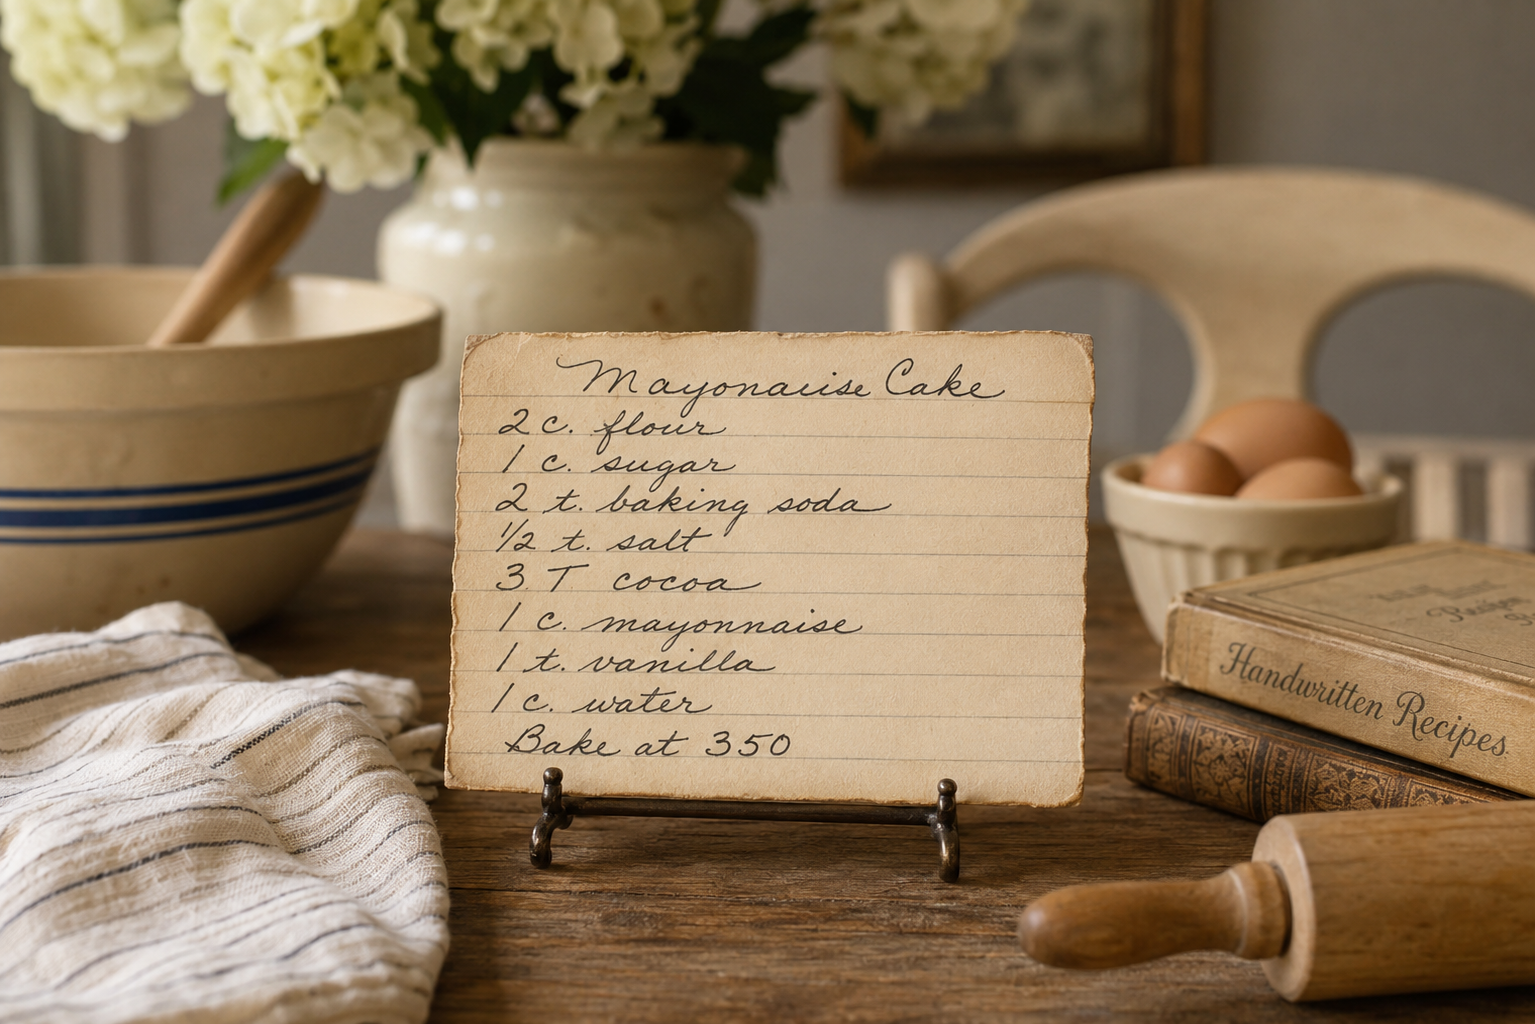 Mayonaise Cake
2 c. flour
1 c. sugar
2 t. baking soda
1/2 t. salt
3 T cocoa
1 c. mayonnaise
1 t. vanilla
1 c. water
Bake at 350
Handwritten Recipes